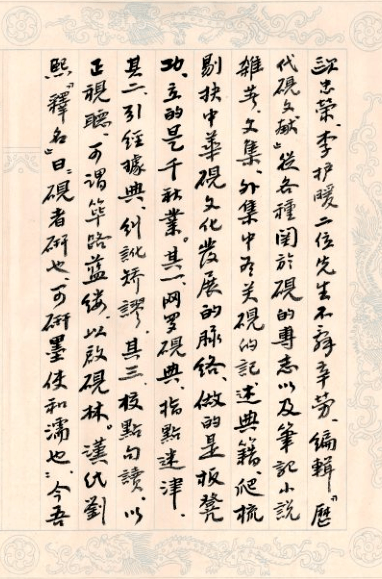 欧忠荣、李护暖二位先生不辞辛劳、编辑『歷
代硯文献』從各種関於硯的專志以及筆記小説
雜考、文集、外集中有关硯的記述典籍、爬梳
剔抉中華硯文化發展的脉络、做的是板凳
功、立的是千秋業。其一、网罗硯典、指點迷津、
其二、引经據典、糾訛矫謬、其三、校點句讀、以
正視聽、可谓筚路蓝缕、以啟硯林。漢代劉
熙『釋名』曰：硯者研也、可研墨使和濡也、今吾